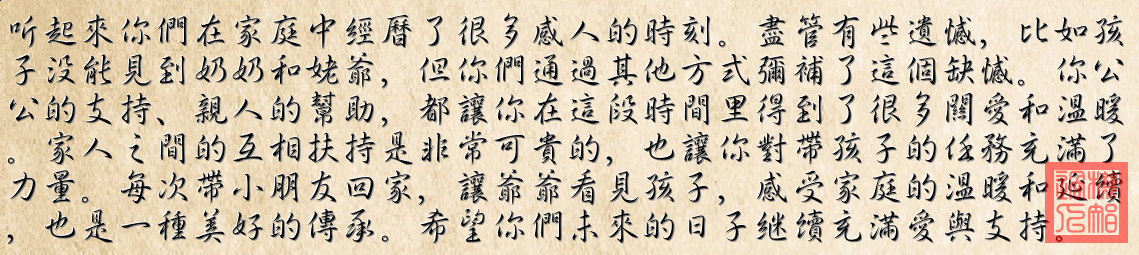 听起來你們在家庭中經曆了很多感人的時刻。盡管有些遺憾，比如孩
子没能見到奶奶和姥爺，但你們通過其他方式彌補了這個缺憾。你公
公的支持、親人的幫助，都讓你在這段時間里得到了很多關愛和温暖
。家人之間的互相扶持是非常可貴的，也讓你對帶孩子的任務充滿了
力量。每次帶小朋友回家，讓爺爺看見孩子，感受家庭的温暖和延續
，也是一種美好的傳承。希望你們未來的日子继續充滿愛與支持。